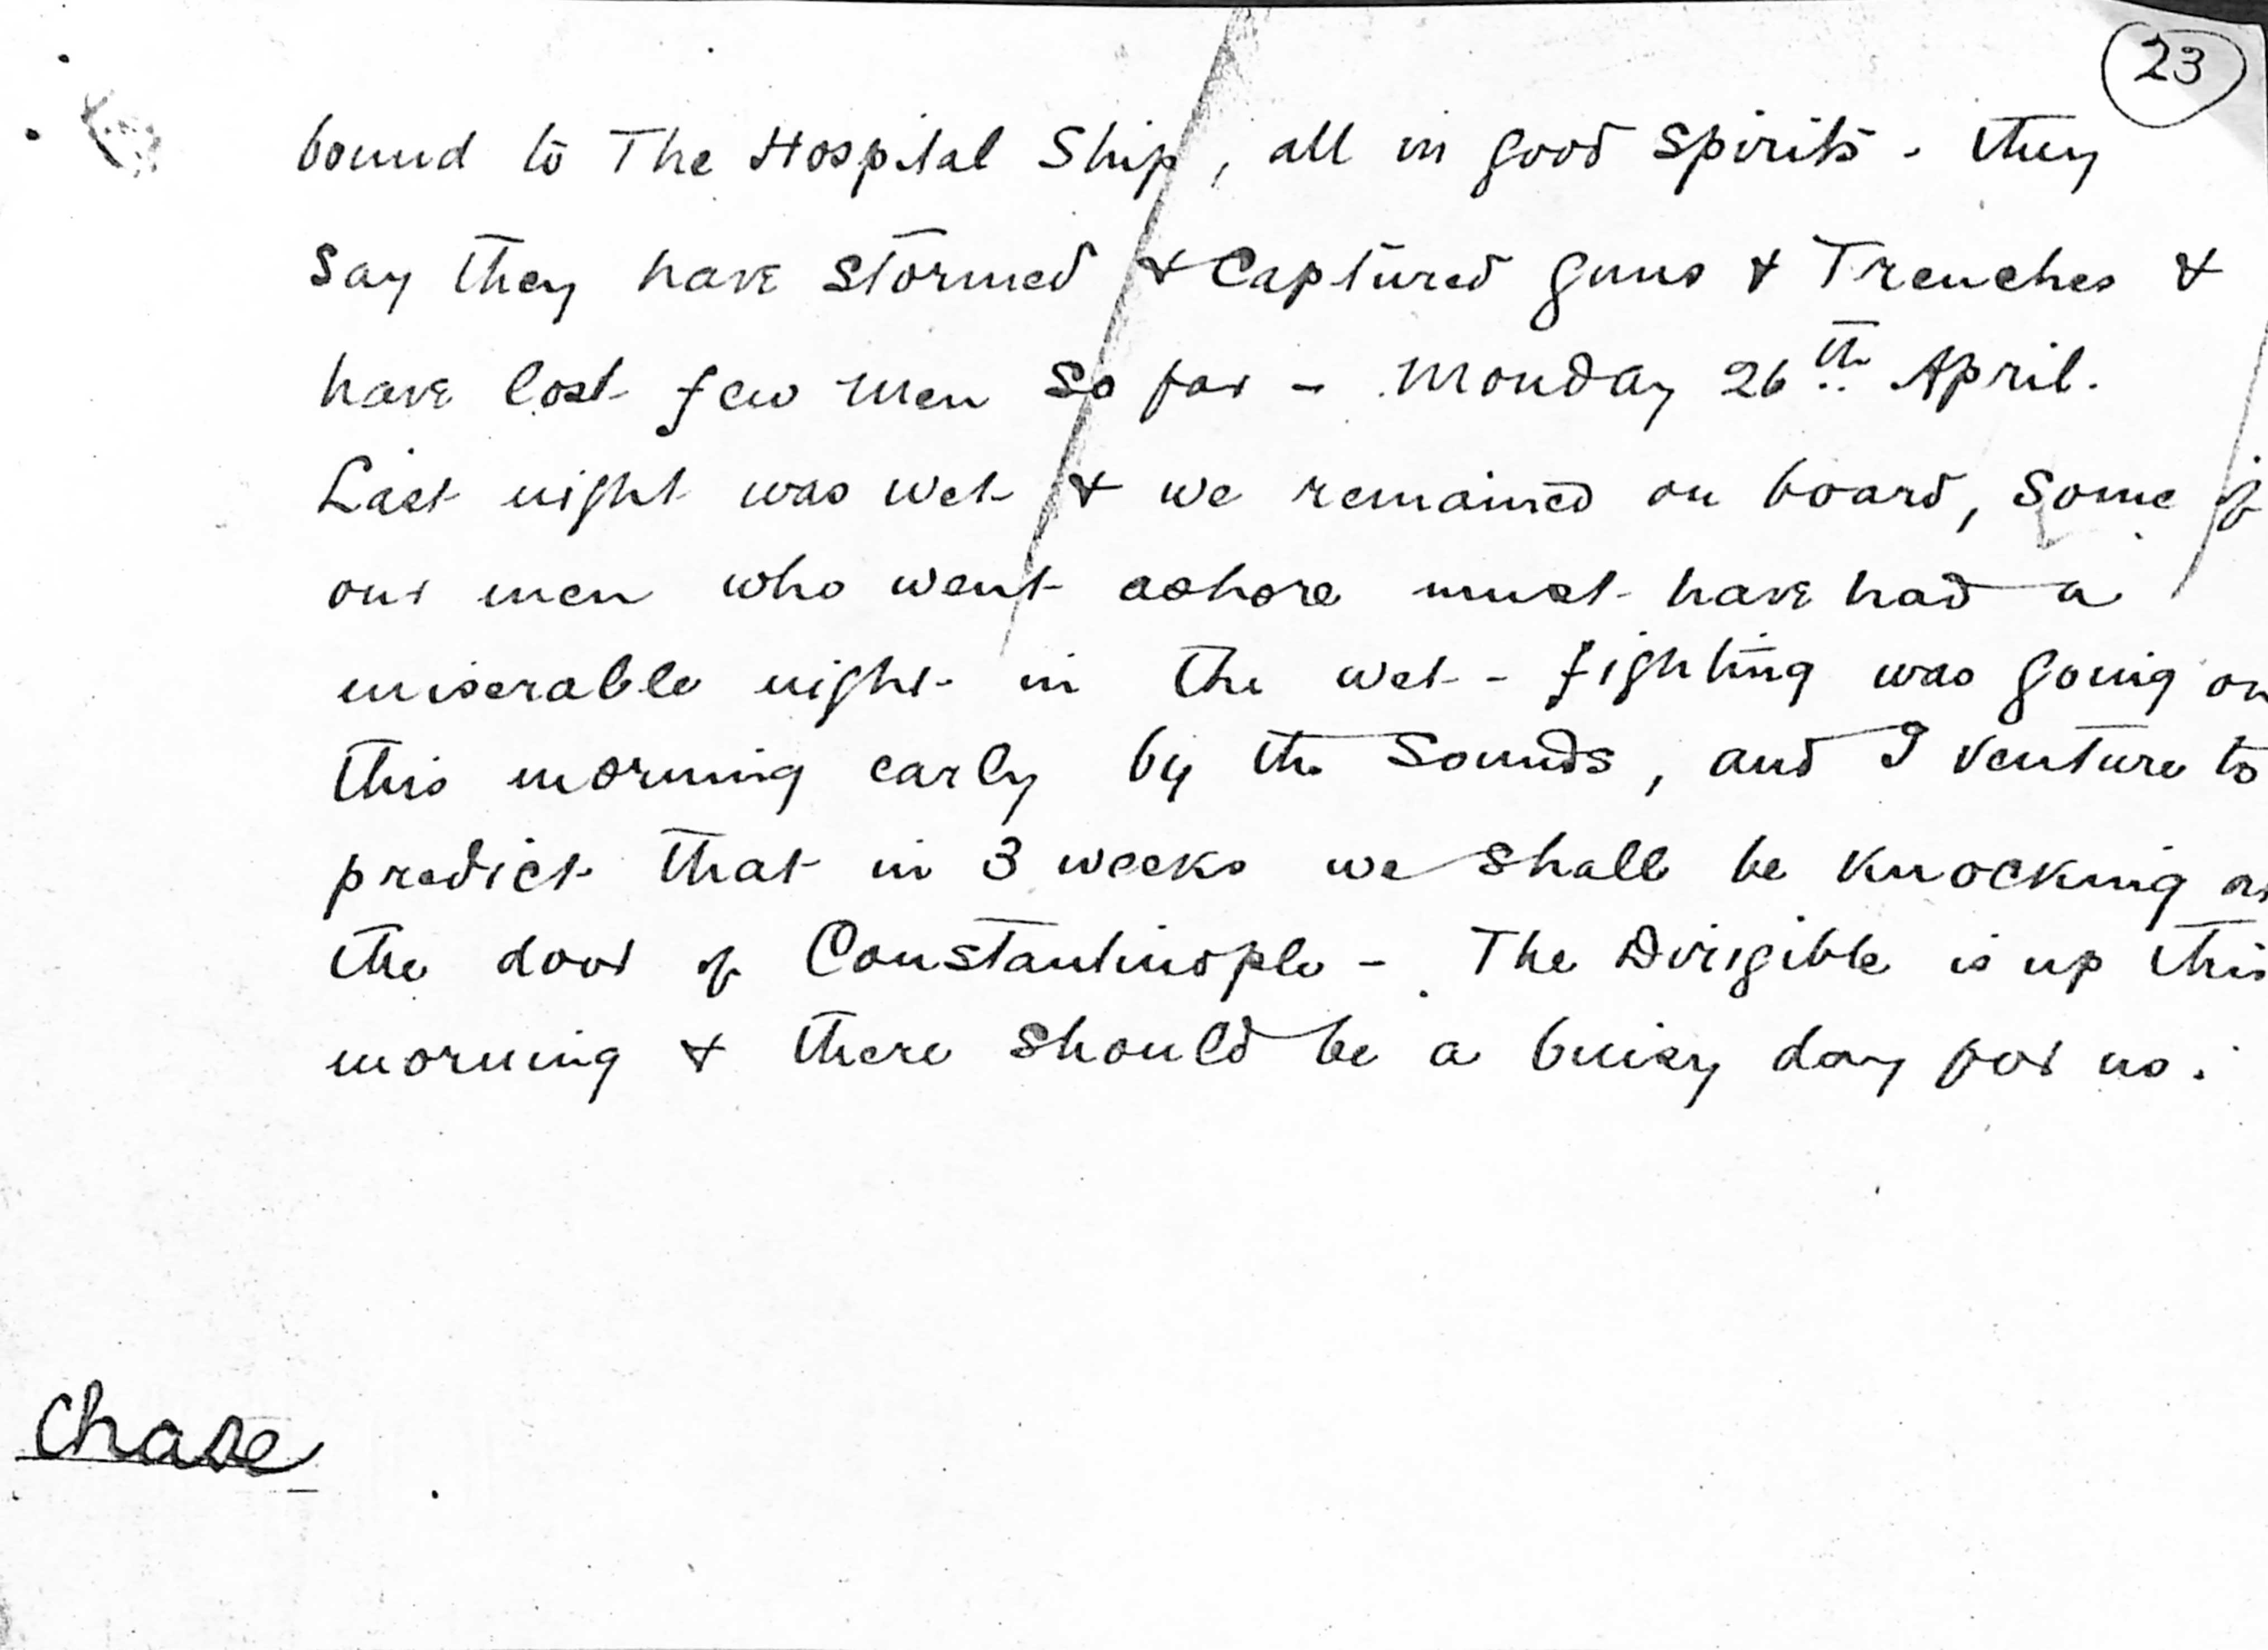 23
bound to The Hospital Ship, all in good spirits - they
say they have stormed & Captured guns & Trenches &
have lost few men so far - Monday 26th April.
Last night was wet & we remained on board, some of
our men who went ashore must have had a
miserable night in the wet - fighting was going on
this morning early by the Sounds, and I venture to
predict that in 3 weeks we shall be knocking at
the door of Constantinople - The Dirigible is up this
morning & there should be a buisy day for us.
Chase